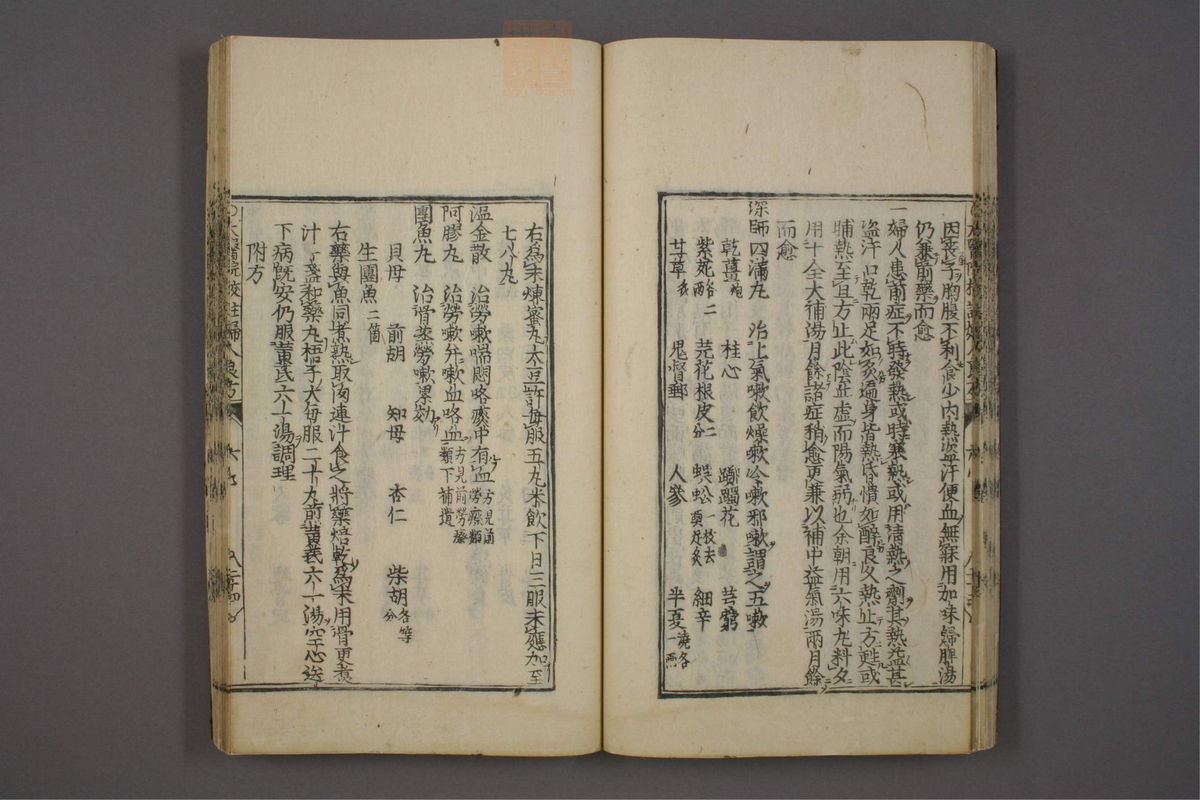 因喪子胸腹不利食少内熱盜汗便血無寐用加味歸脾湯
仍兼前藥而愈
一婦人患前症不時發熱或時寒熱或用清熱之劑其熱益甚
盜汗口乾兩足如炙遍身皆熱昏憒如醉良久熱止方甦或
晡熱至旦方止此陰血虛而陽氣弱也余朝用六味丸料夕
用十全大補湯月餘諸症稍愈更兼以補中益氣湯兩月餘
而愈
深師四滿丸 治上氣嗽飲燥嗽冷嗽邪嗽謂之五嗽
乾薑炮 桂心 躑躅花 芎藭
紫苑各二兩 芫花根皮二分 蜈蚣一枚去頭足炙 細辛
甘草炙 鬼督郵 人參 半夏洗各一兩
右爲末煉蜜丸大豆許每服五丸米飲下日三服未應加至
七八丸
溫金散 治勞嗽喘悶咯痰中有血方見前勞瘵類
阿膠丸 治勞嗽并嗽血咯血方見前勞瘵類下補遺
團魚丸 治骨蒸勞嗽累効
貝母 前胡 知母 杏仁 柴胡各等分
生團魚二箇
右藥與魚同煮熟取肉連汁食之將藥焙乾爲末用骨更煮
汁一盞和藥丸梧子大每服二十丸煎黄芪六一湯空心送
下病既安仍服黄芪六一湯調理
附方